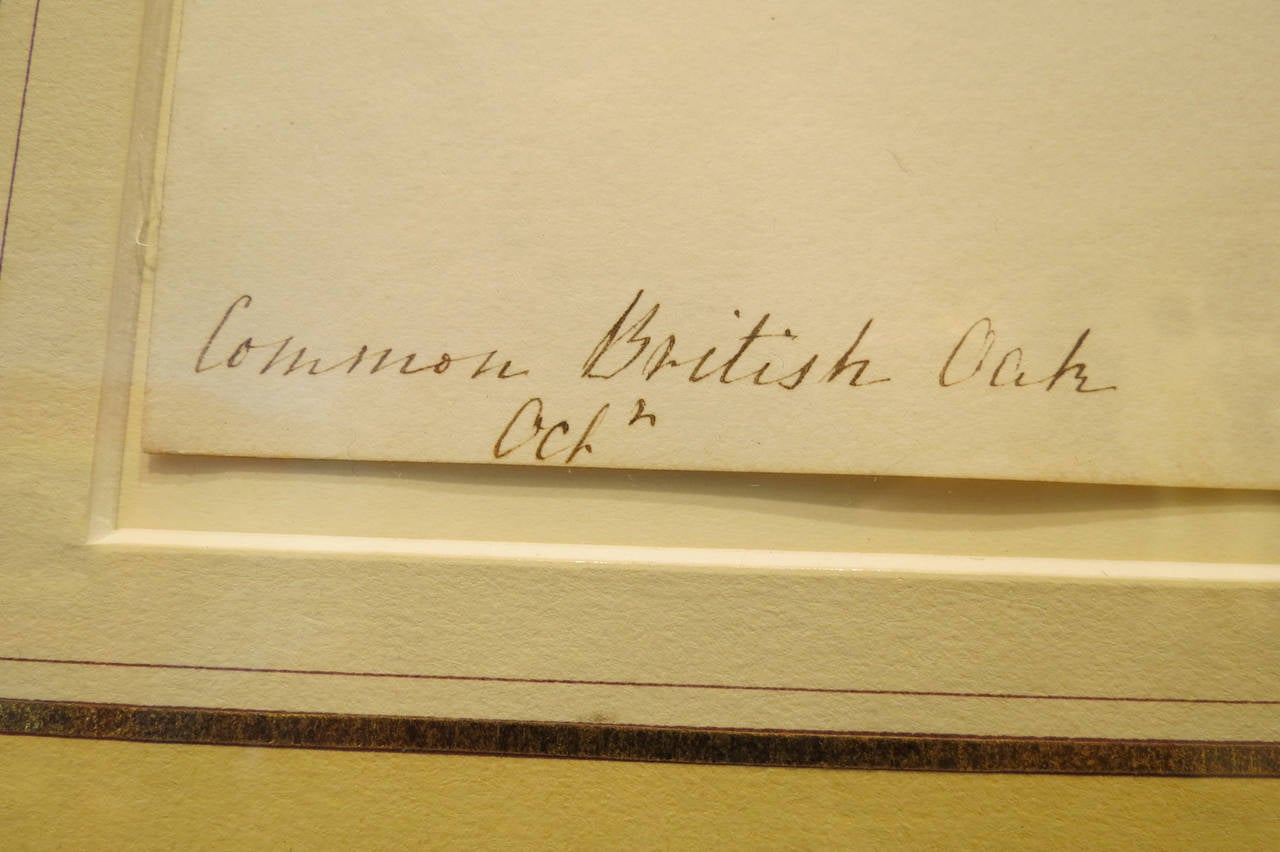 Common British Oak
Octʳ